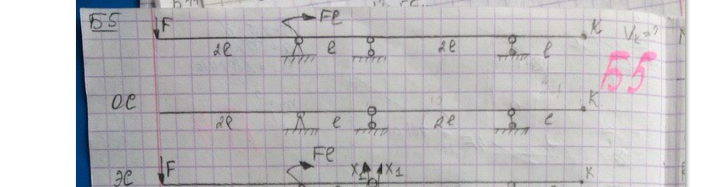 Б5 F Fl K V_K=?
2l l 2l l
Б5
ОС K
2l l 2l l
ЭС F Fl X₁ X₁ K